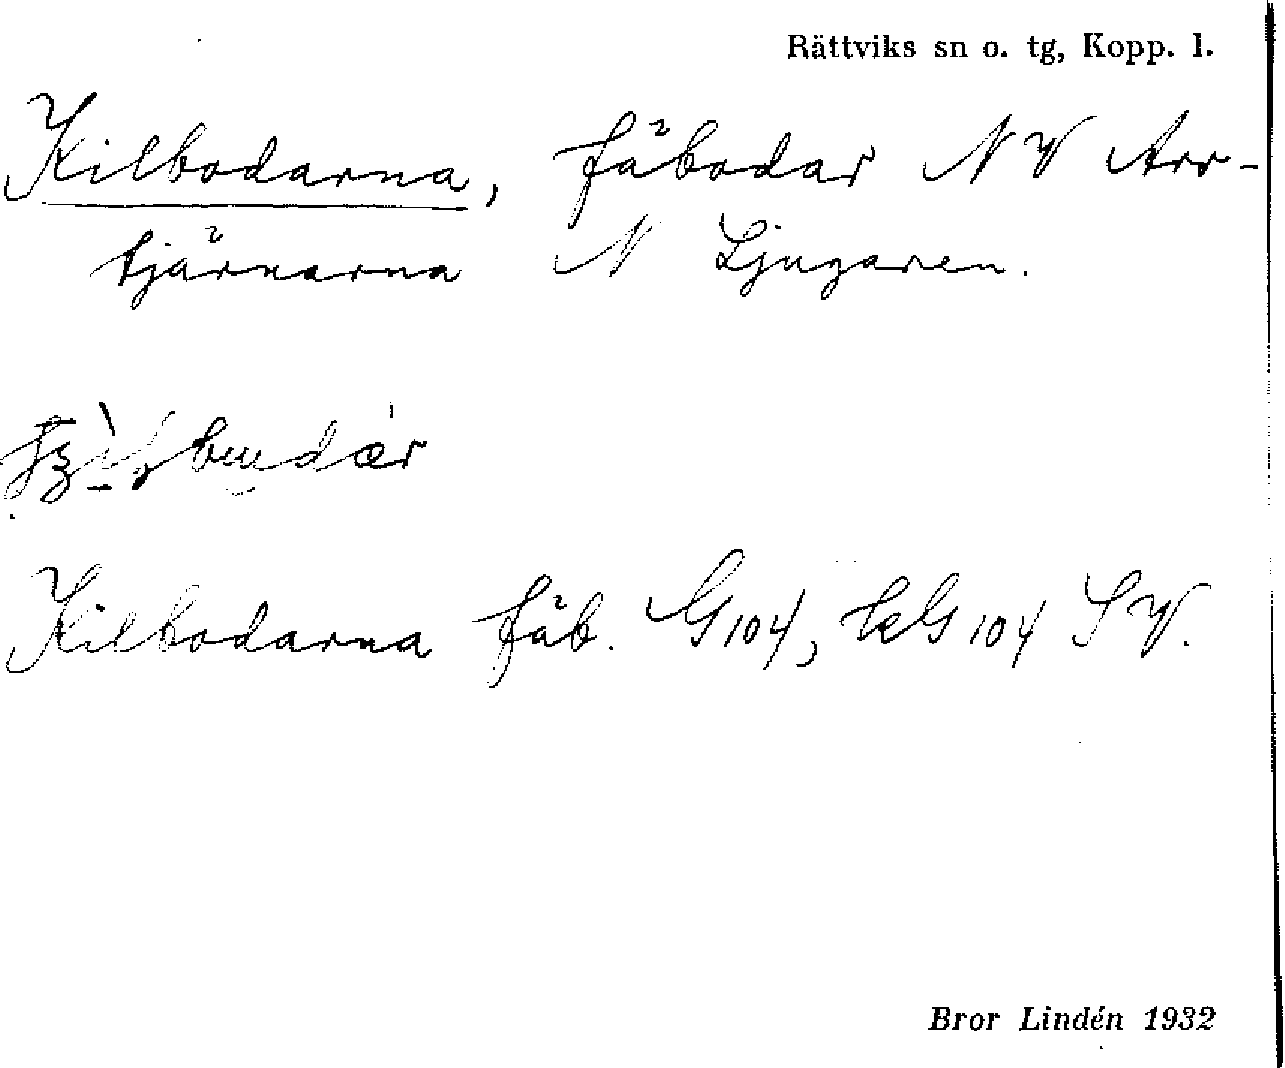 Rättviks sn o. tg, Kopp. l.
Kilbodarna, fäbodar NV Arr-
tjärnarna N Ljugaren.
Kilbodarna fäb. G104, kG 104 SV.
Bror Lindén 1932